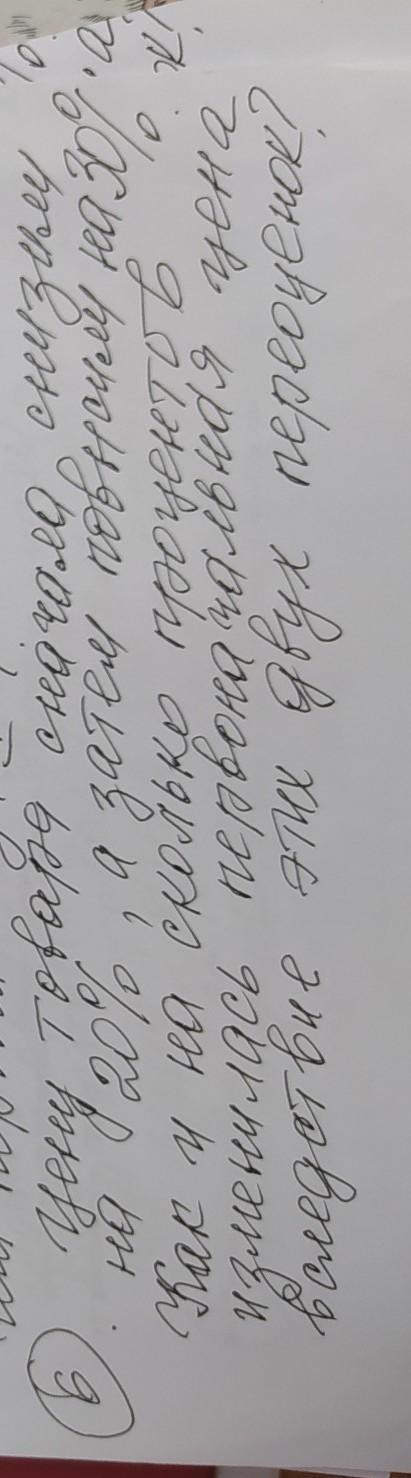 6
Цену товара сначала снизили
на 20%, а затем повысили на 30%.
Как и на сколько процентов
изменилась первоначальная цена
вследствие этих двух переоценок?